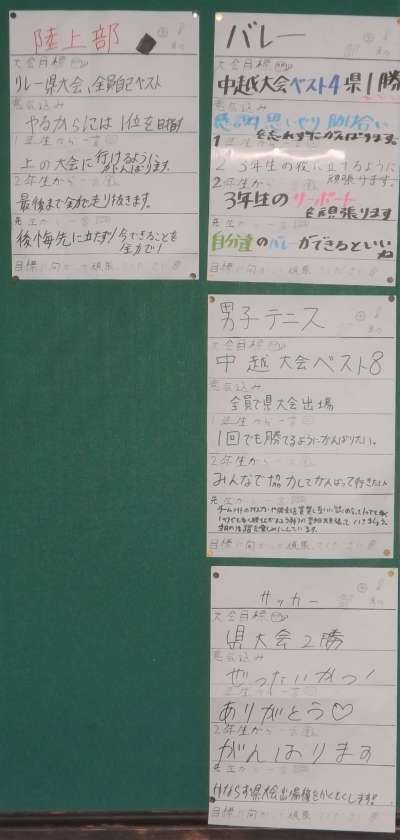 陸上部
大会目標
リレー県大会、全員自己ベスト
意気込み
やるからには1位を目指す
1年生から一言
上の大会に行けるように
がんばります。
2年生から一言
最後まで全力で走り抜きます。
先生から一言
後悔先に立たず!今できることを
全力で!
目標に向かって頑張ってください
バレー
大会目標
中越大会ベスト4 県1勝
意気込み
感謝 思いやり 助け合い
を忘れずにがんばります。
1
2 3年生の役に立てるように
頑張ります。
2
3年生のサポート
を頑張ります
先生から一言
自分達のバレーができるといい
ね
目標に向かって頑張ってください
男子テニス
大会目標
中越大会ベスト8
意気込み
全員で県大会出場
1年生から一言
1回でも勝てるようにがんばりたい。
2年生から一言
みんなで協力してがんばって行きたい
先生から一言
目標に向かって頑張ってください
サッカー部
大会目標
県大会2勝
意気込み
ぜったいかつ!
1年生から一言
ありがとう♡
2年生から一言
がんばります
先生から一言
かならず県大会出場権をかくとくします!!
目標に向かって頑張ってください